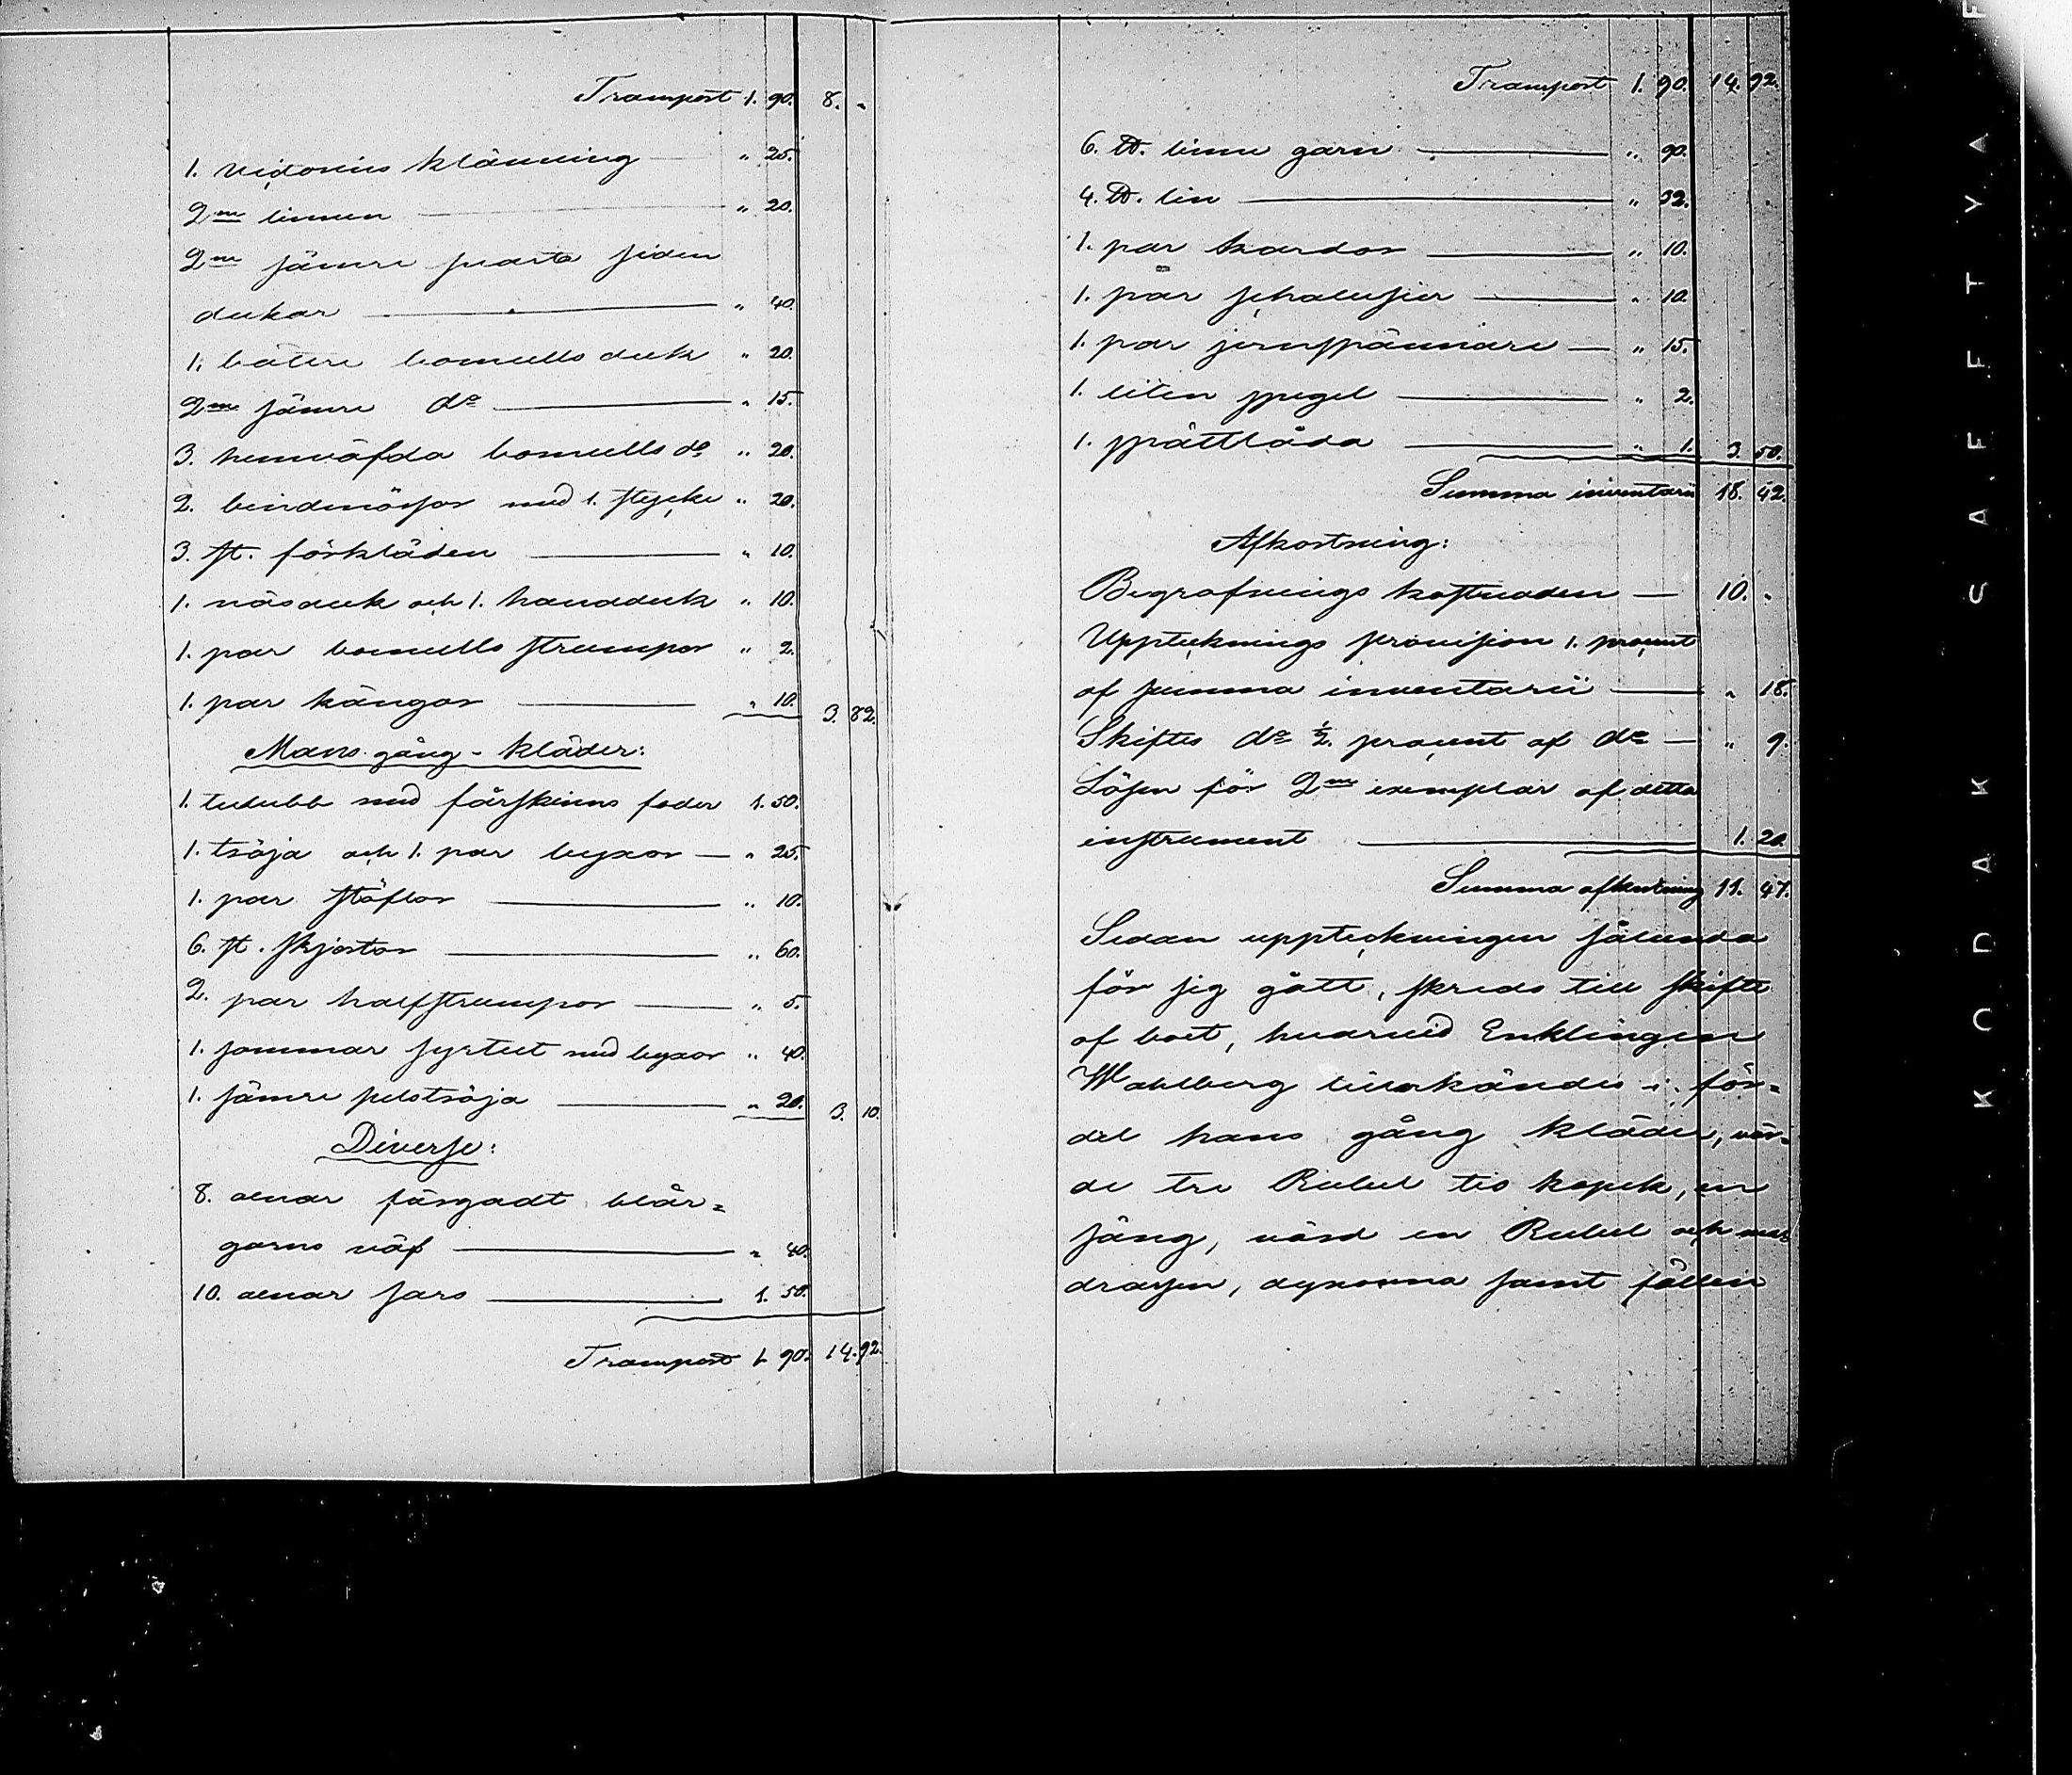 Transport 1. 90. 8. "
1. vidonins klänning " 25.
2ne linnen " 20.
2ne sämre svarta siden
dukar " 40.
1. bätere bomulls duk " 20.
2ne sämre do " 15.
3. hemväfda bomulls do " 20.
2. bindmössor med 1. stycke " 20.
3. st. förkläden " 10.
1. näsduk och 1. handduk " 10.
1. par bomulls strumpor " 2.
1. par kängor " 10. 3. 82.
Mans gång-kläder:
1. tulubb med fårskinns foder 1. 50.
1. tröja och 1. par byxor " 25.
1. par stöflor " 10.
6. st. skjortor " 60.
2. par halfstrumpor " 5.
1. sommar syrtut med byxor " 40.
1. sämre pelströja " 20. 3. 10.
Diverse:
8. alnar färgadt blår=
garns väf " 40.
10. alnar sars 1. 50.
Transport 1. 90. 14. 92.
Transport 1. 90. 14. 92.
6. ℔. linne garn " 90.
4. ℔. lin " 32.
1. par kardor " 10.
1. par schalusier " 10.
1. par jernspännare " 15.
1. liten spegel " 2.
1. spåttlåda " 1. 3. 50.
Summa inventarii 18. 42.
Afkortning:
Begrafnings kostnaden 10. "
Uppteknings provision 1. procent
af summa inventarii " 18.
Skiftes do ½. procent af do " 9.
Lösen för 2ne exemplar af detta
instrument 1. 20.
Summa afkortning 11. 47.
Sedan uppteckningen sålunda
för sig gått, skreds till skifte
af boet, hvarvid Enklingen
Wahlberg tillerkändes i för=
del hans gång kläder, vär=
de tre Rubel tio kopek, en
säng, värd en Rubel och mad
drassen, dynorna samt fällen
KODAK SAFETY A F